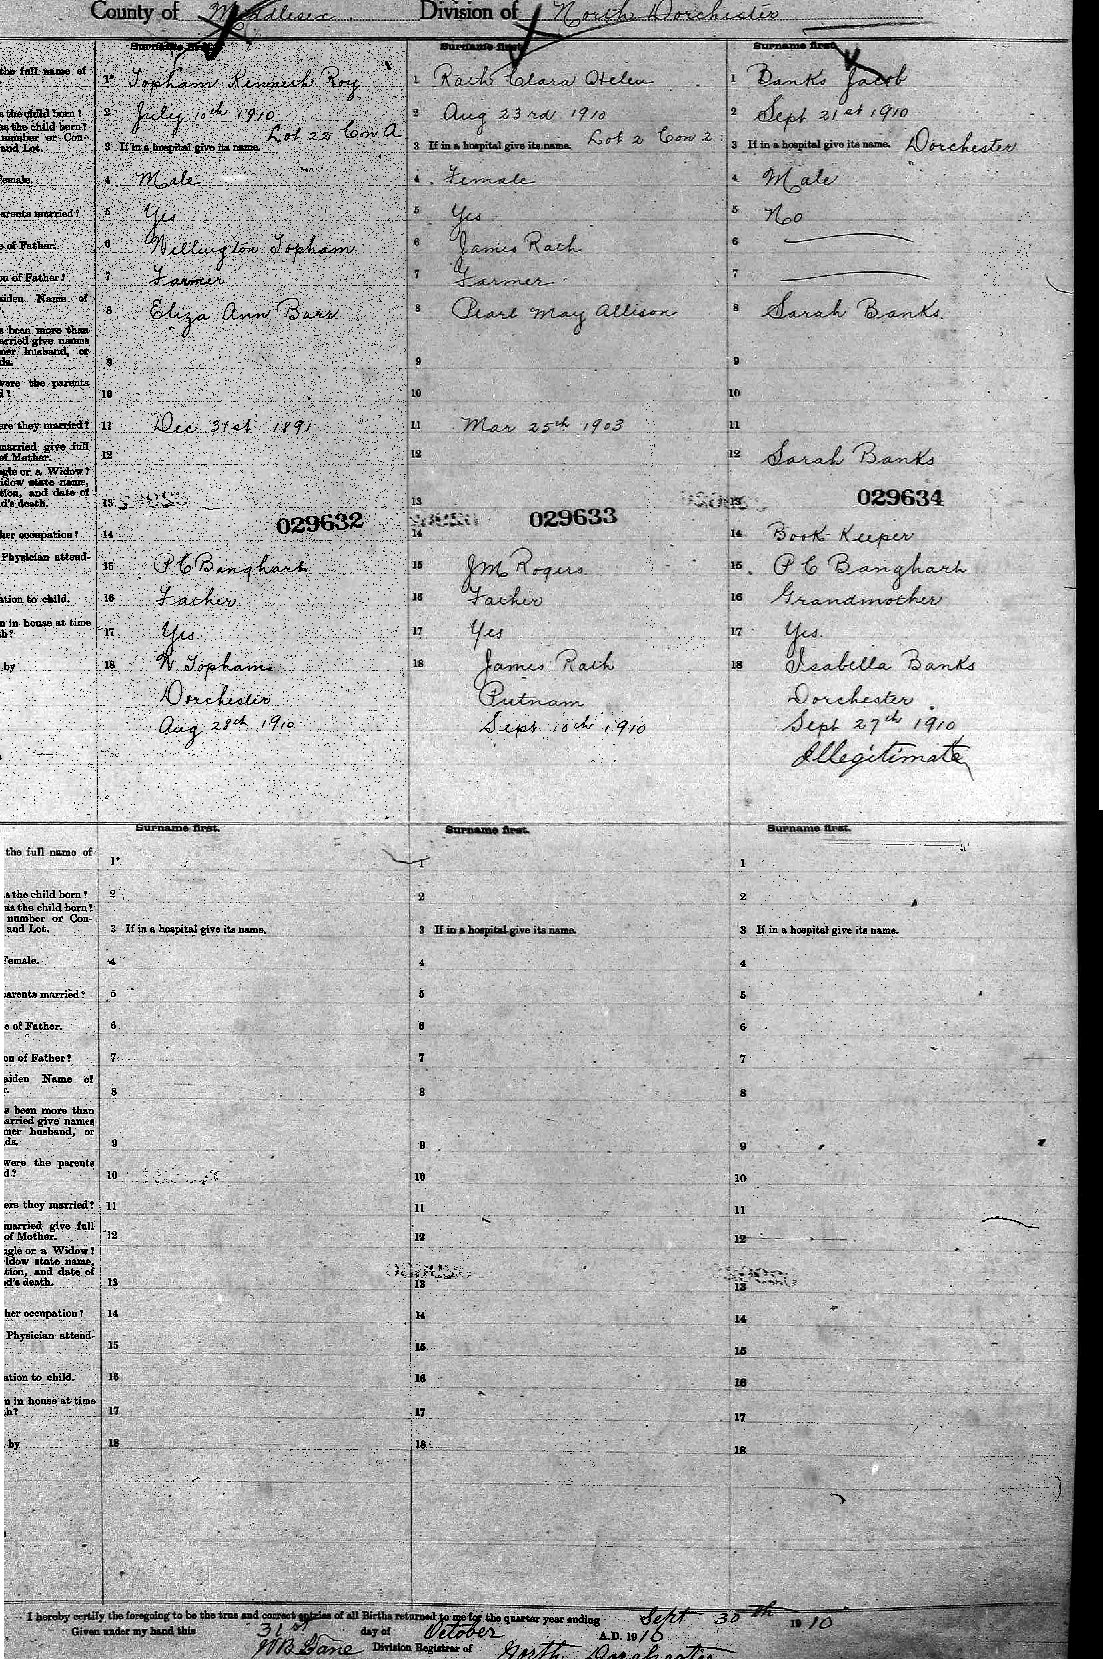 County of Middlesex Division of North Dorchester
Surname first. Surname first. Surname first.
the full name of 1 Topham Kenneth Roy 1 Rath Clara Helen 1 Banks Jacob
s the child born? 2 July 10th 1910 2 Aug 23rd 1910 2 Sept 21st 1910
as the child born? Lot 22 Con A Lot 2 Con 2
number or Con-
and Lot. 3 If in a hospital give its name. 3 If in a hospital give its name. 3 If in a hospital give its name. Dorchester
Female. 4 Male 4 Female 4 Male
parents married? 5 Yes 5 Yes 5 No
e of Father. 6 Wellington Topham 6 James Rath 6
on of Father? 7 Farmer 7 Farmer 7
aiden Name of
8 Eliza Ann Barr 8 Pearl May Allison 8 Sarah Banks
s been more than
arried give names
mer husband, or
ds. 9 9 9
were the parents
d? 10 10 10
ere they married? 11 Dec 31st 1891 11 Mar 25th 1903 11
married give full
of Mother. 12 12 12 Sarah Banks
ngle or a Widow?
idow state name,
tion, and date of
d's death. 13 13 13
029632 029633 029634
her occupation? 14 14 14 Book Keeper
Physician attend-
15 P C Banghart 15 J M Rogers 15 P C Banghart
ation to child. 16 Father 16 Father 16 Grandmother
n in house at time
h? 17 Yes 17 Yes 17 Yes
by 18 W Topham 18 James Rath 18 Isabella Banks
Dorchester Putnam Dorchester
Aug 28th 1910 Sept 10th 1910 Sept 27th 1910
Illegitimate
Surname first. Surname first. Surname first.
the full name of 1 1 1
s the child born? 2 2 2
as the child born?
number or Con-
and Lot. 3 If in a hospital give its name. 3 If in a hospital give its name. 3 If in a hospital give its name.
Female. 4 4 4
parents married? 5 5 5
e of Father. 6 6 6
on of Father? 7 7 7
aiden Name of
r. 8 8 8
s been more than
arried give names
mer husband, or
ds. 9 9 9
were the parents
d? 10 10 10
ere they married? 11 11 11
married give full
of Mother. 12 12 12
ngle or a Widow?
idow state name,
tion, and date of
d's death. 13 13 13
her occupation? 14 14 14
Physician attend-
15 15 15
ation to child. 16 16 16
n in house at time
h? 17 17 17
by 18 18 18
I hereby certify the foregoing to be the true and correct entries of all Births returned to me for the quarter year ending Sept 30th 1910
Given under my hand this 31st day of October A.D. 1910
W B Lane Division Registrar of North Dorchester